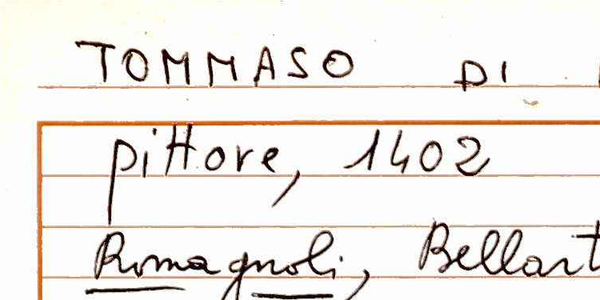 TOMMASO DI
pittore, 1402
Romagnoli, Bellart